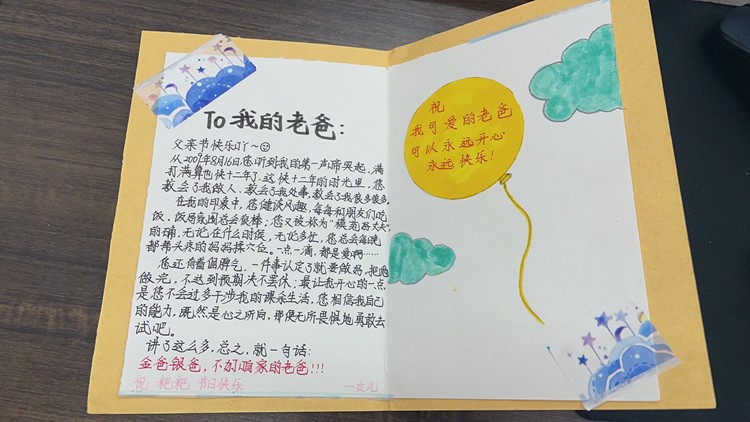 To 我的老爸:
父亲节快乐吖~
从2009年8月16日您听到我的第一声啼哭起,满
打满算也快十二年了。这快十二年的时光里,您
教会了我做人,教会了我处事,教会了我很多很多。
在我的印象中,您健谈风趣,每每和朋友们吃
饭,饭局氛围总会很棒;您又被称为“模范好丈夫”
的确,无论在什么时候,无论多忙,您总会每晚
都帮头疼的妈妈揉穴位。一点一滴,都是爱啊……
您还有着倔脾气,一件事认定了就要做好,把它
做完,不达到预期决不罢休;最让我开心的一点
是您不会过多干涉我的课余生活,您相信我自己
的能力,既然是心之所向,那便无所畏惧地勇敢去
试吧。
讲了这么多,总之,就一句话:
金爸银爸,不如咱家的老爸!!!
祝 粑粑 节日快乐
—女儿
祝
我可爱的老爸
可以永远开心
永远快乐!